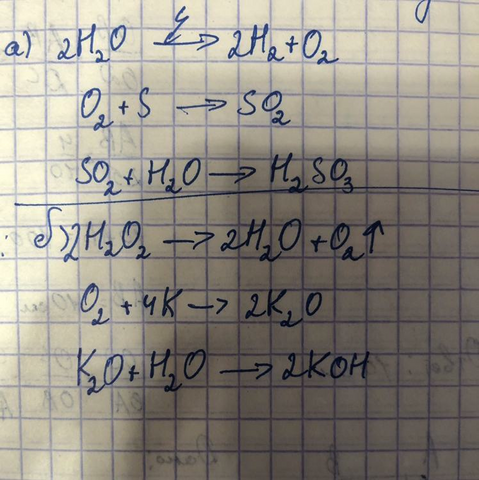 а) 2H₂O ⟶ 2H₂+O₂
O₂+S ⟶ SO₂
SO₂+H₂O ⟶ H₂SO₃
б) 2H₂O₂ ⟶ 2H₂O+O₂↑
O₂+4K ⟶ 2K₂O
K₂O+H₂O ⟶ 2KOH